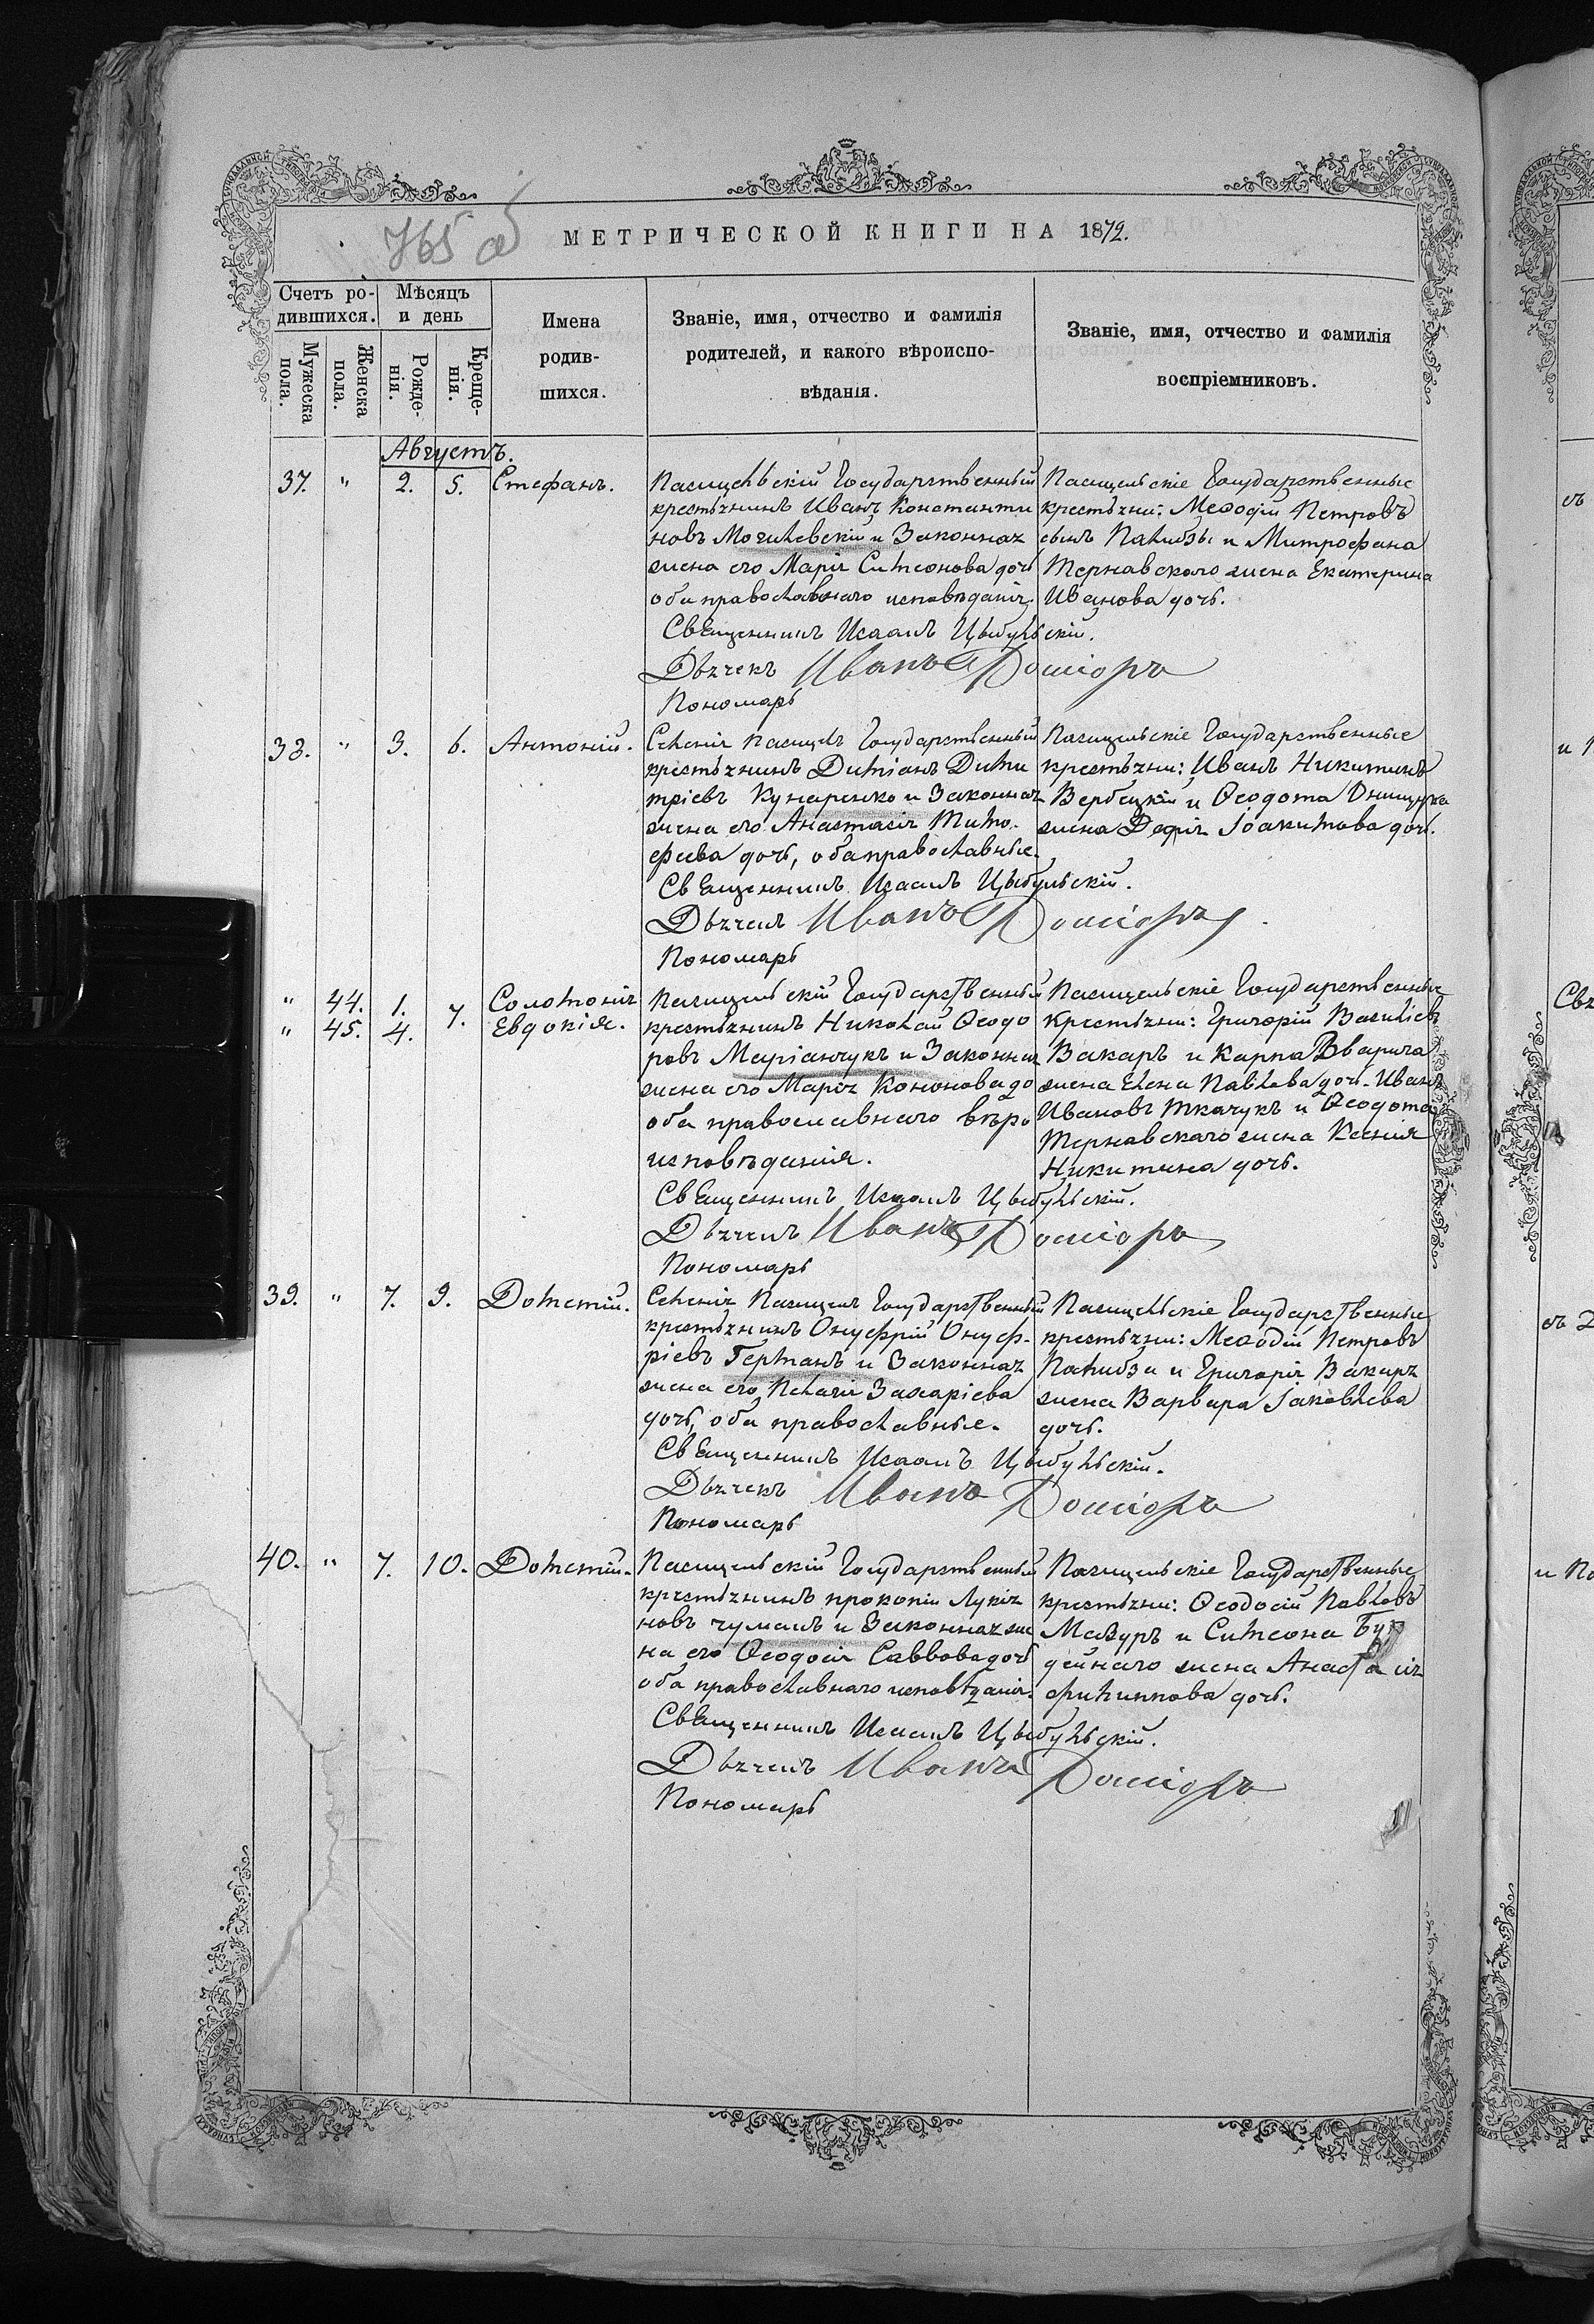 765 об
МЕТРИЧЕСКОЙ КНИГИ НА 1872.
Счетъ ро-
дившихся.
Мѣсяцъ
и день
Мужеска
пола.
Женска
пола.
Рожде-
нія.
Креще-
нія.
Имена
родив-
шихся.
Званіе, имя, отчество и фамилія
родителей, и какого вѣроиспо-
вѣданія.
Званіе, имя, отчество и фамилія
воспріемниковъ.
Августъ.
37. " 2. 5. Стефанъ.
Пасицельскій Государственный
крестьянинъ Иванъ Константи
новъ Могилевскій и Законная
жена его Марія Симеонова дочь
оба православнаго исповѣданія.
Пасицельскіе Государственные
крестьяни: Меѳодій Петровъ
сынъ Палибзы и Митрофана
Тернавскаго жена Екатерина
Иванова дочь.
Священникъ Исаакъ Цыбульскій.
Дьячекъ Иванъ
Пономарь
38. " 3. 6. Антоній.
Селенія Пасицелъ Государственный
крестьянинъ Диміанъ Дими
тріевъ Кучаренко и Законная
жена его Анастасія Тимо-
феева дочь, оба православные.
Пасицельскіе Государственные
крестьяни: Иванъ Никитинъ
Вербецкій и Ѳеодота Онищука
жена Дарія Іоакимова дочь.
Священникъ Исаакъ Цыбульскій.
Дьячекъ Иванъ
Пономарь
" 44. 1. 7. Соломонія
" 45. 4. Евдокія.
Пасицельскій Государственный
крестьянинъ Николай Ѳеодо
ровъ Маріанчукъ и Законная
жена его Марія Кононова до
оба православнаго вѣро
исповѣданія.
Пасицельскіе Государственные
крестьяни: Григорій Василіевъ
Вакаръ и Карпа Вварича
жена Елена Павлова дочь. Иванъ
Ивановъ Ткачукъ и Ѳеодота
Тернавскаго жена Ксенія
Никитина дочь.
Священникъ Исаакъ Цыбульскій.
Дьячекъ Иванъ
Пономарь
39. " 7. 9. Дометій.
Селенія Пасицелъ Государственный
крестьянинъ Онуфрій Онуф-
ріевъ Германъ и Законная
жена его Пелагія Захаріева
дочь, оба православные.
Пасицельскіе Государственные
крестьяни: Меѳодій Петровъ
Палибза и Григорія Вакаря
жена Варвара Іаковлева
дочь.
Священникъ Исаакъ Цыбульскій.
Дьячекъ Иванъ
Пономарь
40. " 7. 10. Дометій.
Пасицельскій Государственный
крестьянинъ Прокопій Лукія
новъ Чумакъ и Законная же
на его Ѳеодосія Саввова дочь
оба православнаго исповѣданія.
Пасицельскіе Государственные
крестьяни: Ѳеодосій Павловъ
Мазуръ и Симеона
жена Анастасія
Филиппова дочь.
Священникъ Исаакъ Цыбульскій.
Дьячекъ Иванъ
Пономарь